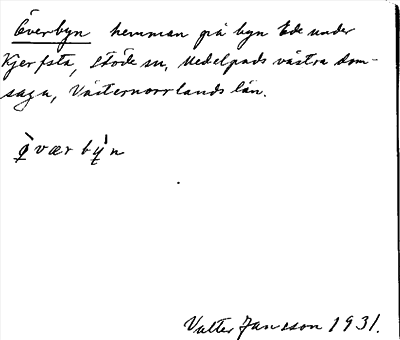 Överbyn hemman på byn Ede under
Kjerfsta, Stöde sn, Medelpads västra dom-
saga, Västernorrlands län.
ø̀værby̍n
Valter Jansson 1931.